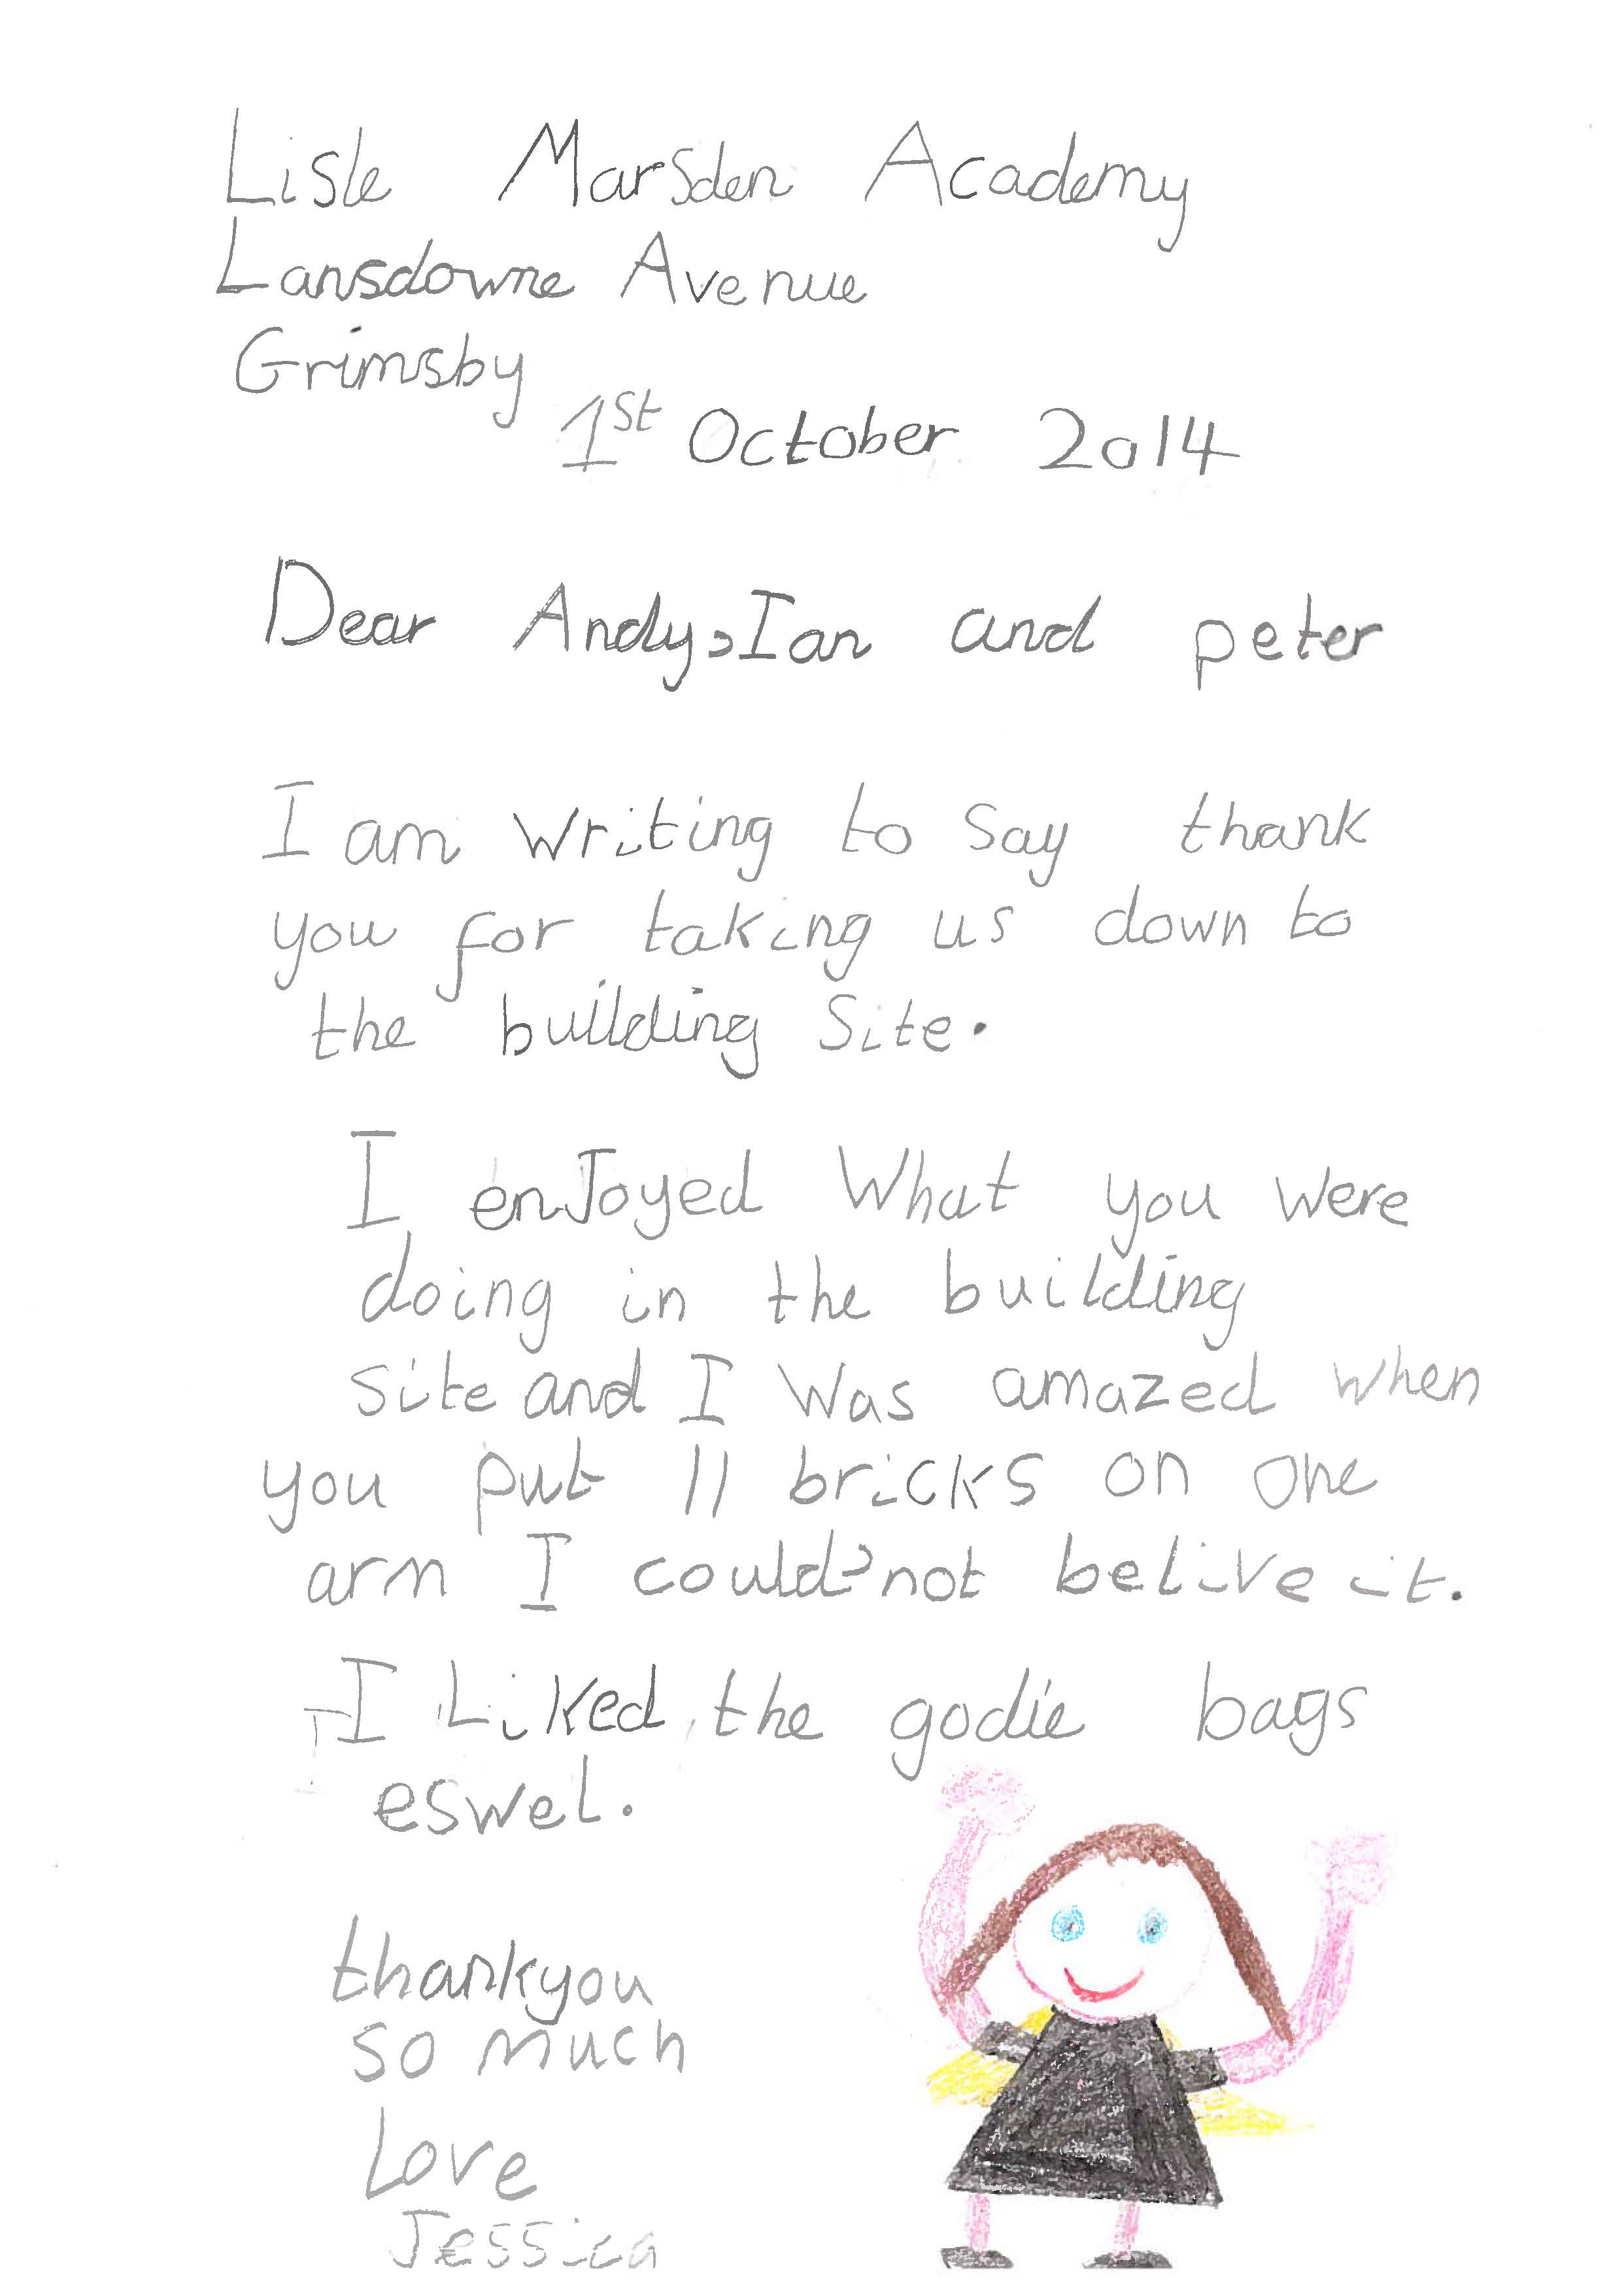 Lisle Marsden Academy
Lansdowne Avenue
Grimsby
1st October 2014
Dear Andy,Ian and peter
I am writing to say thank
you for taking us down to
the building site.
I enJoyed What you were
doing in the building
site and I was amazed when
you put 11 bricks on one
arm I could'not belive it.
I Liked the godie bags
eswel.
thankyou
so much
Love
Jessica